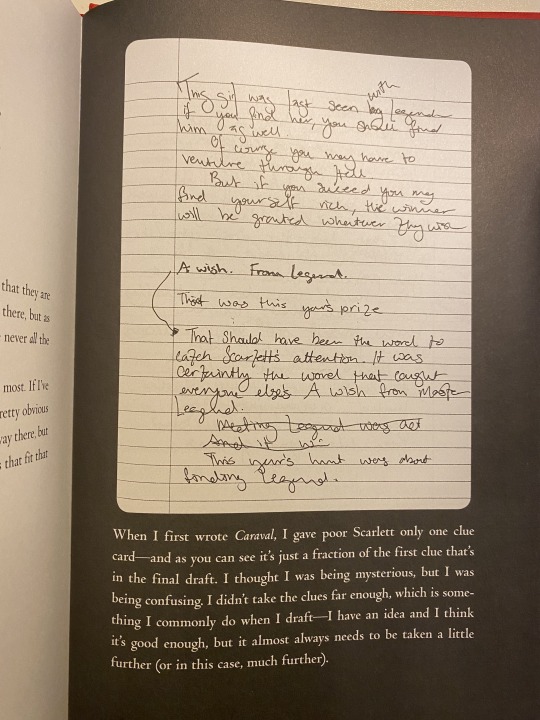 This girl was last seen with Legend
if you find her, you should find
him as well.
Of course you may have to
venture through hell
But if you suceed you may
find yourself rich, the winner
will be granted whatever they wish
A wish. From Legend.
That was this year's prize
That should have been the word to
catch Scarlett's attention. It was
certaintly the word that caught
everyone else's A wish from Master
Legend.
Meeting Legend was
And if
This year's hunt was about
finding Legend.
that they are
there, but as
never all the
most. If I've
retty obvious
vay there, but
s that fit that
When I first wrote Caraval, I gave poor Scarlett only one clue
card—and as you can see it's just a fraction of the first clue that's
in the final draft. I thought I was being mysterious, but I was
being confusing. I didn't take the clues far enough, which is some-
thing I commonly do when I draft—I have an idea and I think
it's good enough, but it almost always needs to be taken a little
further (or in this case, much further).